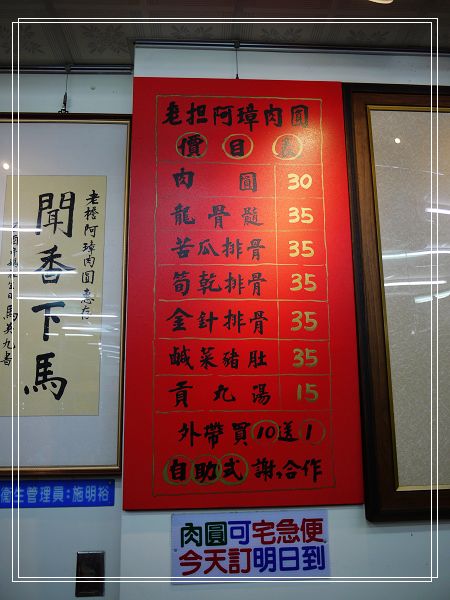 老担阿璋肉圓
價目表
肉圓 30
龍骨髓 35
苦瓜排骨 35
筍乾排骨 35
金針排骨 35
鹹菜豬肚 35
貢丸湯 15
外帶買10送1
自助式謝謝合作
老擔阿璋肉圓惠存
聞香下馬
馬英九書
衛生管理員：施明裕
肉圓可宅急便
今天訂明日到